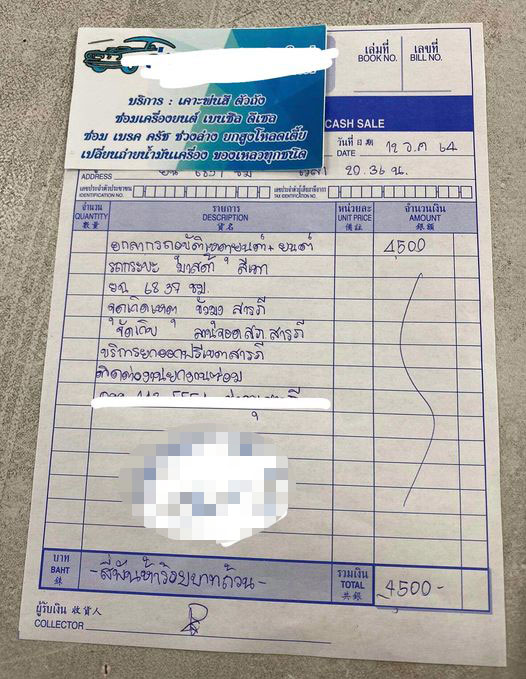 บริการ : เคาะพ่นสี ตัวถัง
ซ่อมเครื่องยนต์ เบนซิล ดีเซล
ซ่อม เบรค ครัช ช่วงล่าง ยกสูงโหลดเตี้ย
เปลี่ยนถ่ายน้ำมันเครื่อง ของเหลวทุกชนิด
เล่มที่ BOOK NO.
เลขที่ BILL NO.
CASH SALE
วันที่ DATE 12 ต.ค 64
ADDRESS 6837 ชม 20.36 น.
เลขประจำตัวประชาชน IDENTIFICATION NO.
เลขประจำตัวผู้เสียภาษีอากร TAX IDENTIFICATION NO.
จำนวน QUANTITY 数量
รายการ DESCRIPTION 貨名
หน่วยละ UNIT PRICE 備註
จำนวนเงิน AMOUNT 銀額
ยกลากรถอุบัติเหตุยนต์+ยนต์ 4,500
รถกระบะ มาสด้า สีเทา
6837 ชม.
จุดเกิดเหตุ สารภี
จุดเก็บ ลานจอดสภ.สารภี
บริการยกออกฟรีเขตสารภี
บาท BAHT 銖
-สี่พันห้าร้อยบาทถ้วน-
รวมเงิน TOTAL 共銀 4500-
ผู้รับเงิน 收貨人
COLLECTOR